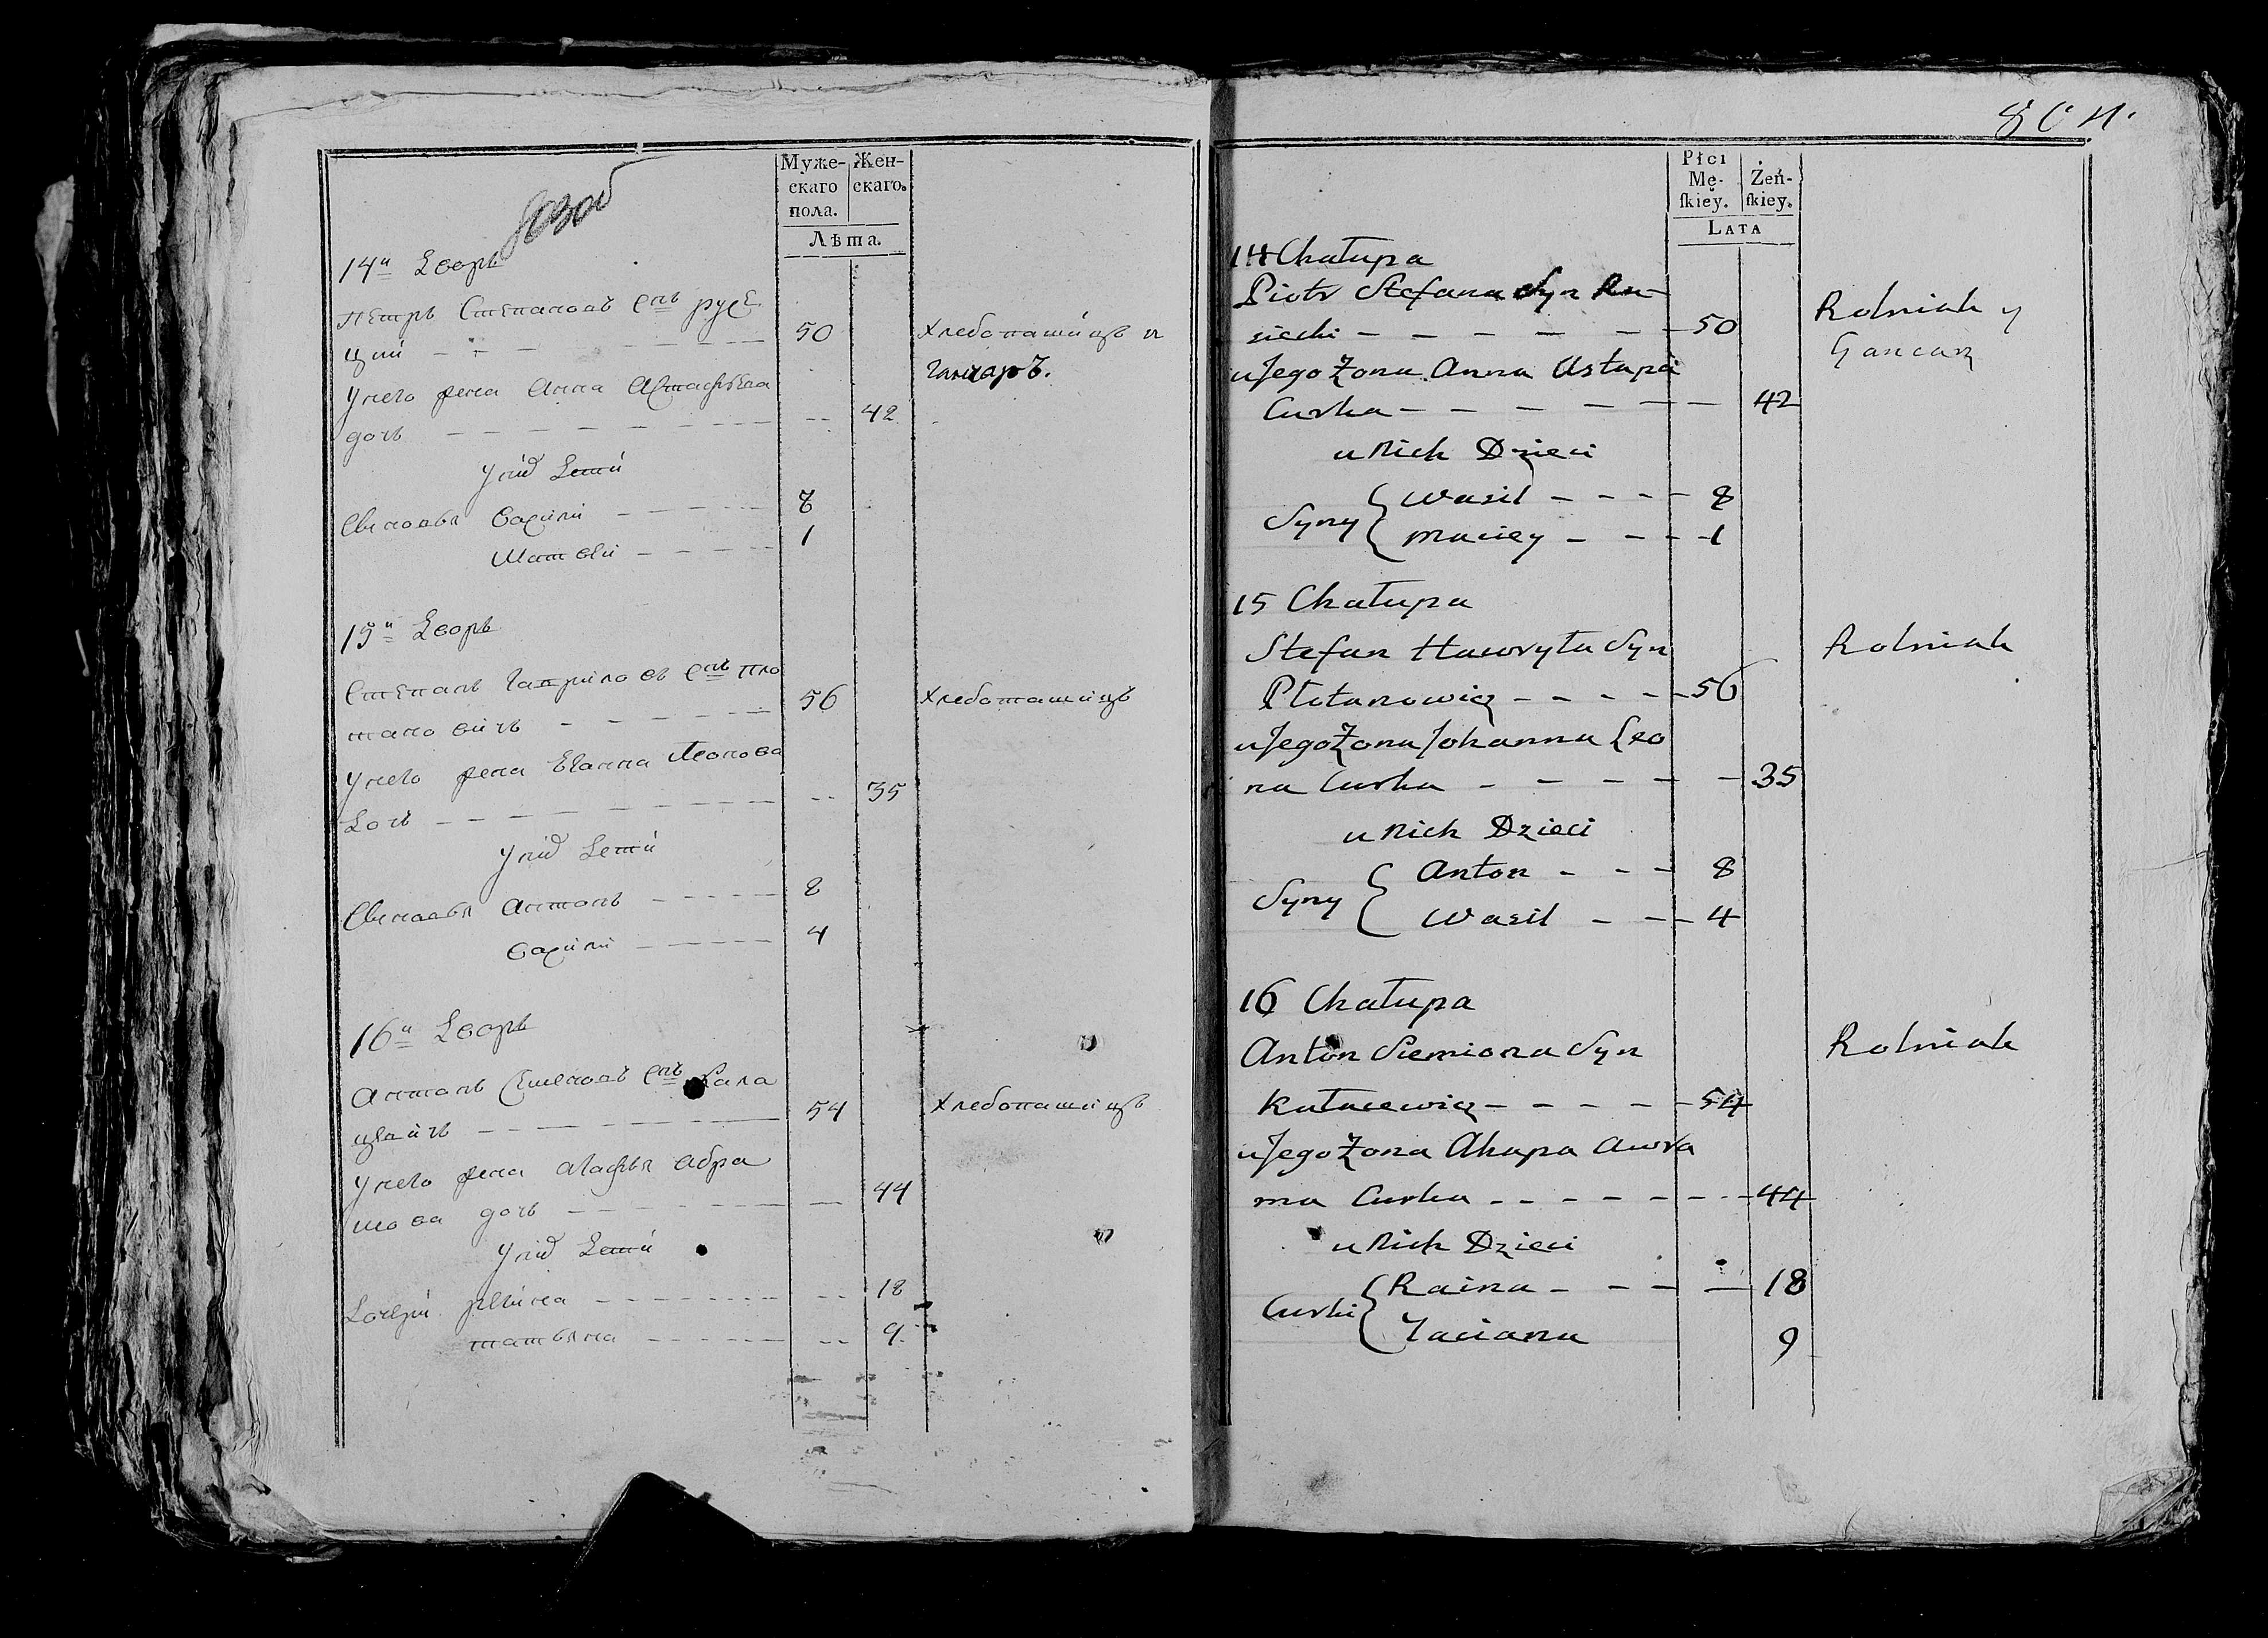 Муже-
скаго
пола.
Жен-
скаго.
Лѣта.
14й Дворъ
Петръ Степановъ снъ русе
цкий 50 Хлебопашицъ и
Унего жена Анна Астафьева гончаръ.
дочь 42
Унихъ Дети
Сыновья Василий 8
Матвей 1
15й Дворъ
Степанъ Гаврыловъ снъ Пло
тановичъ 56 Хлебопашицъ
Унего жена Еванна Леонова
Дочь 35
Унихъ Дети
Сыновья Антонъ 8
Василий 4
16й Дворъ
Антонъ Семеновъ снъ Кала
цевичъ 54 Хлебопашицъ
Унего жена Агафья Абра
мова дочь 44
Унихъ Дети
Дочери 18
татьяна 9
Płci
Mę-
ſkiey.
Żeń-
ſkiey.
LATA
14 Chałupa
Piotr Stefana Syn Ru-
siecki 50 Rolniak y
u Jego Żona Anna Astapa Gancarz
Curka 42
u Nich Dzieci
Syny { Wasil 8
Maciey 1
15 Chałupa
Stefan Hawryła Syn Rolniak
Płotanowicz 56
u Jego Żona Johanna Leo
na Curka 35
u Nich Dzieci
Syny { Anton 8
Wasil 4
16 Chałupa
Anton Siemiona Syn Rolniak
Kałacewicz 54
u Jego Żona Ahapa Awra
ma Curka 44
u Nich Dzieci
Curki { Raina 18
Taciana 9